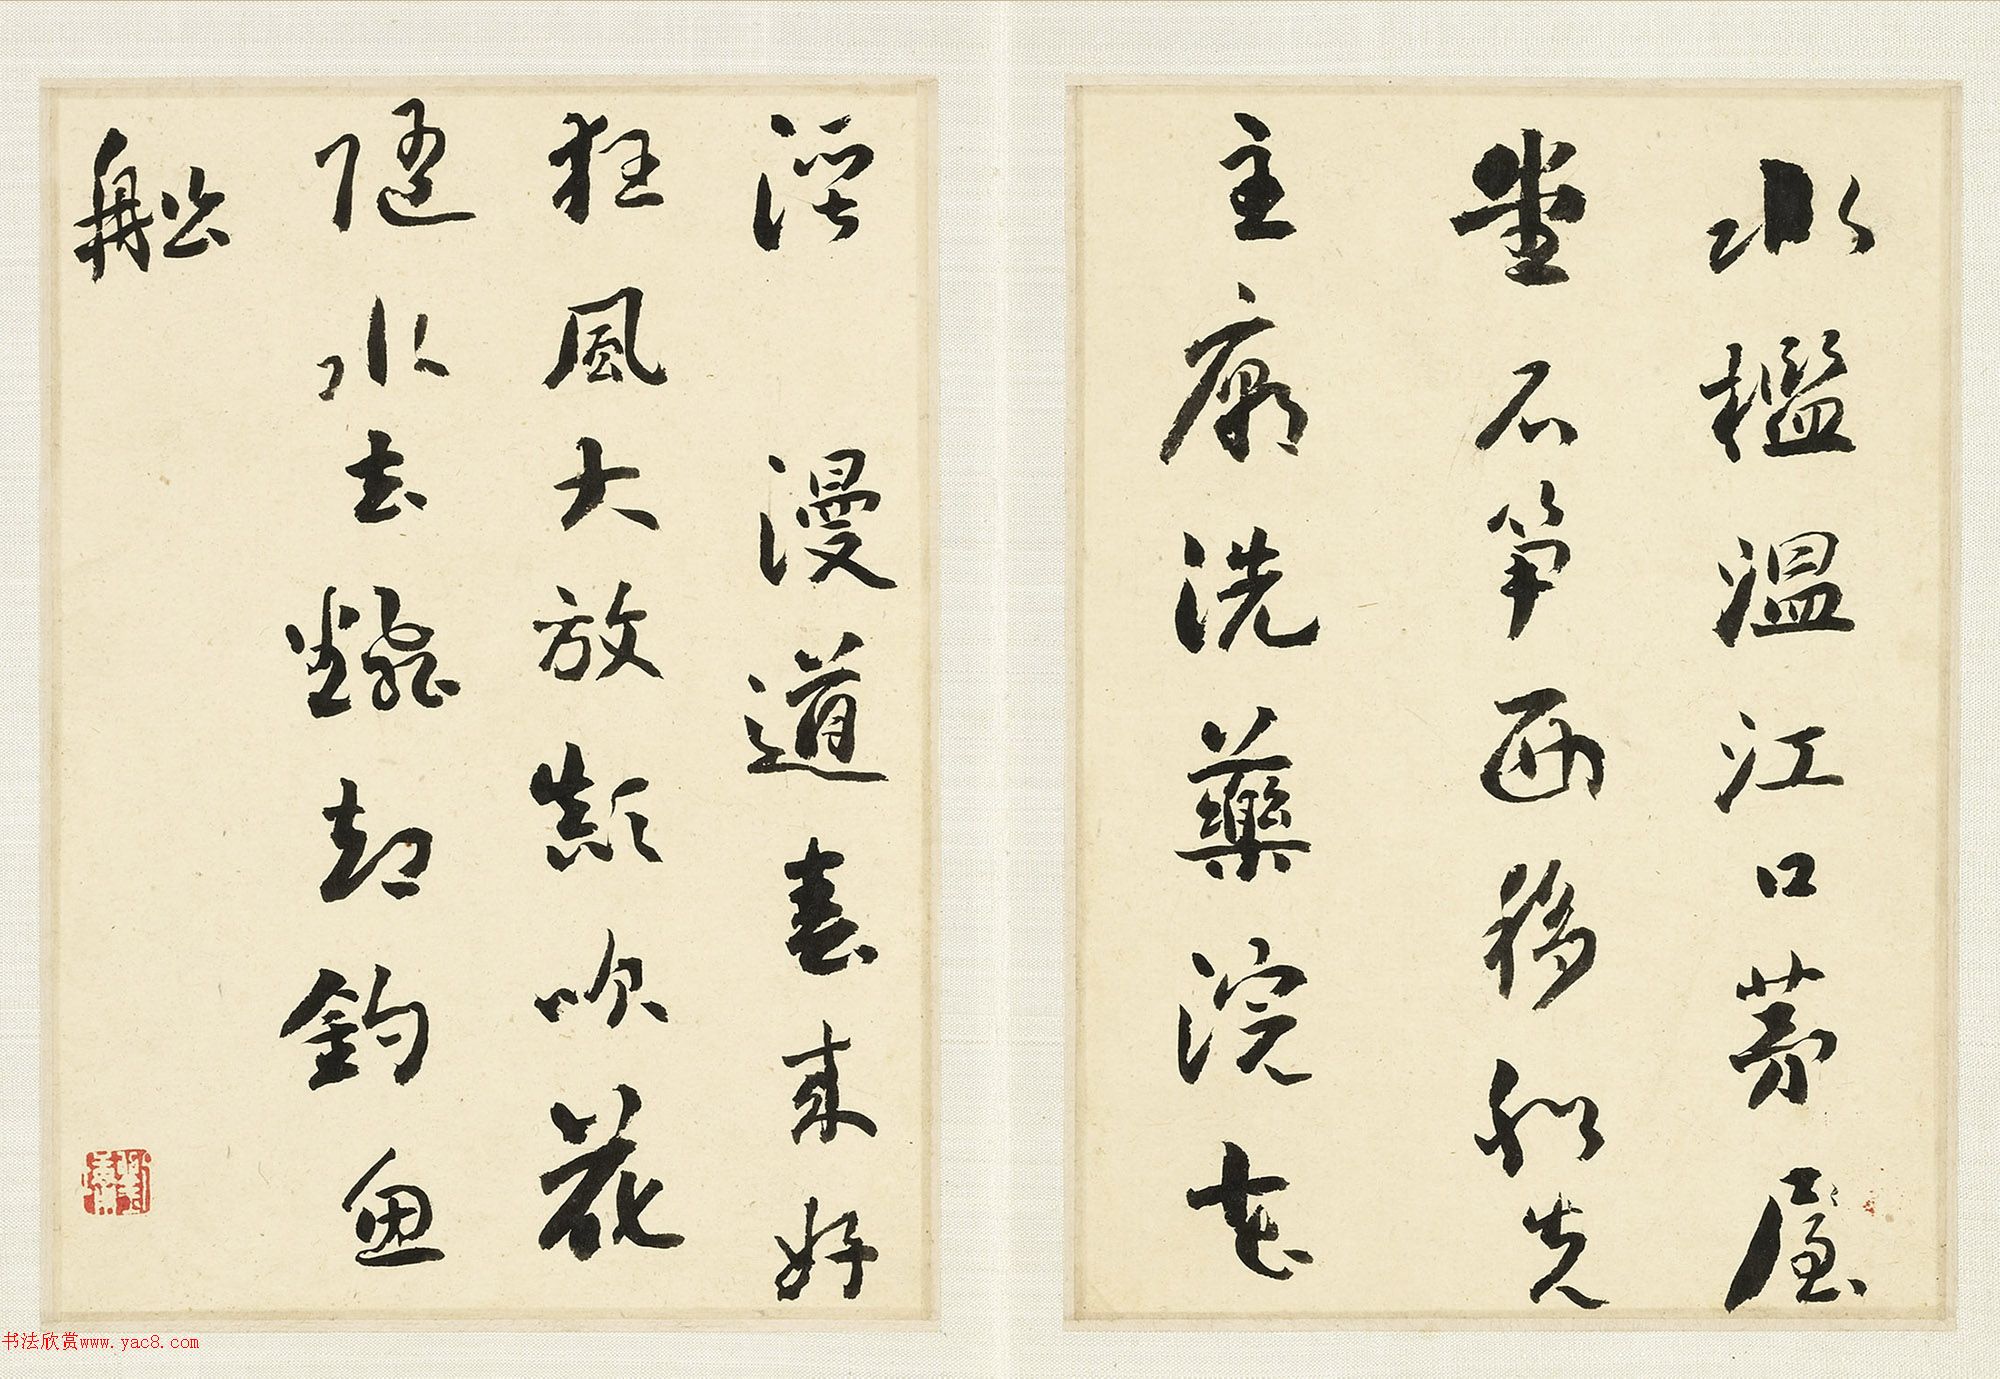 水檻溫江口茅屋
堂石筍西移船先
主廟洗藥浣花
溪 漫道春來好
狂風大放顛吹花
隨水去翻却釣魚
船
书法欣赏www.yac8.com